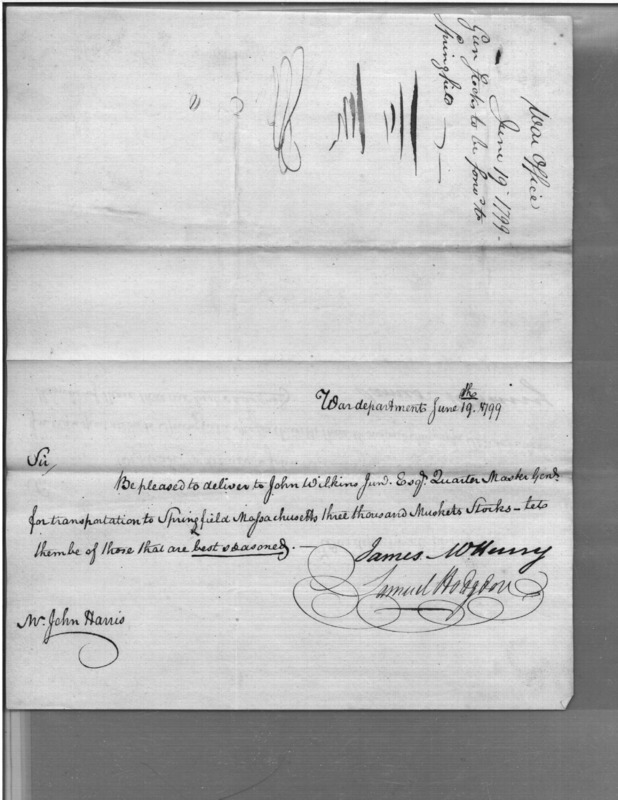 War Office
June 19th 1799 -
Gun Stocks to be forwd to
Springfield
War department June 19th. 1799
Sir
Be pleased to deliver to John Wilkins Junr. Esqr. Quarter Master Genl.
for transportation to Springfield Massachusetts three thousand Muskets Stocks - let
them be of those that are best seasoned. -
James McHenry
Samuel Hodgdon
Mr. John Harris